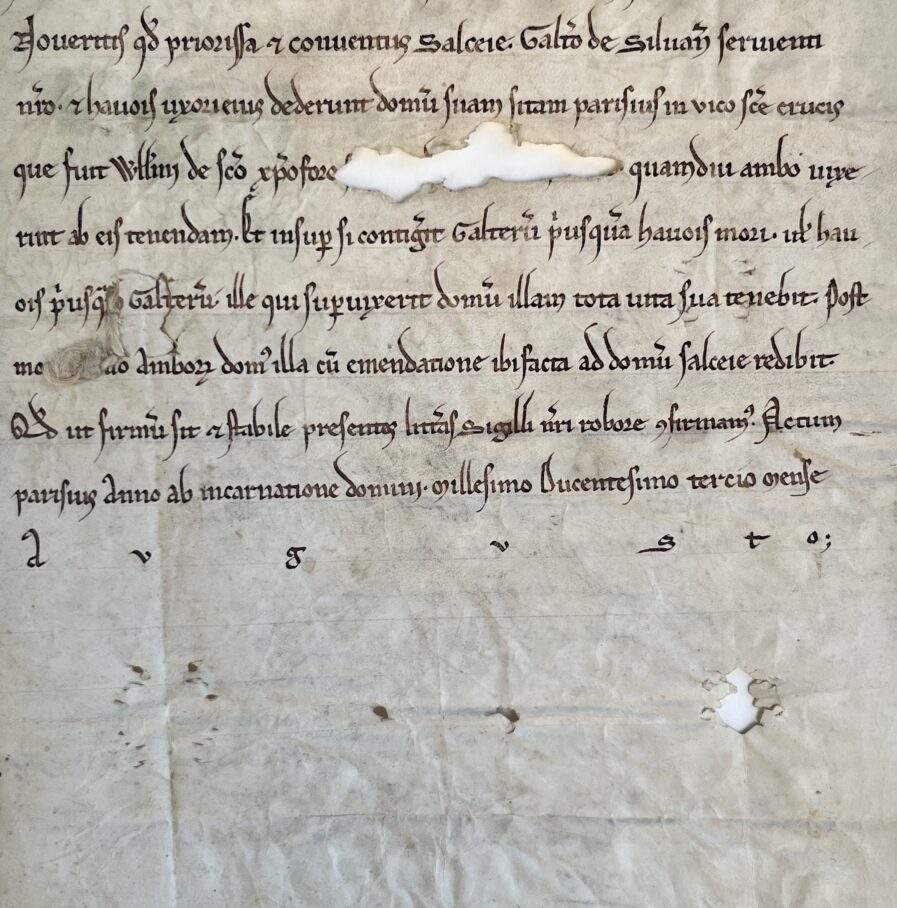 Noveritis qd̄ priorissa ⁊ conventus Salceie. Galt̄o de Siluan̄ servienti
nr̄o. ⁊ havois uxori eius dederunt domū suam sitam parisius in vico sc̄e crucis
que fuit Will̄mi de sc̄o xp̄ofore quamdiu ambo vixe
rint ab eis tenendam. Et insup̄ si contiḡit Galterū p̄usquā havois mori. ul̄ hav
ois p̄usq̄ Galterū. ille qui sup̄vixerit domū illam tota vita sua tenebit. Post
mo Amborꝝ domꝰ illa cū emendatione ibi facta ad domū salceie redibit.
Qd̄ ut firmū sit ⁊ stabile presentes litt̄as Sigilli nr̄i robore ꝯfirmamꝰ. Actum
parisius Anno ab incarnatione domini. Millesimo Ducentesimo tercio mense
A v g v s t o;